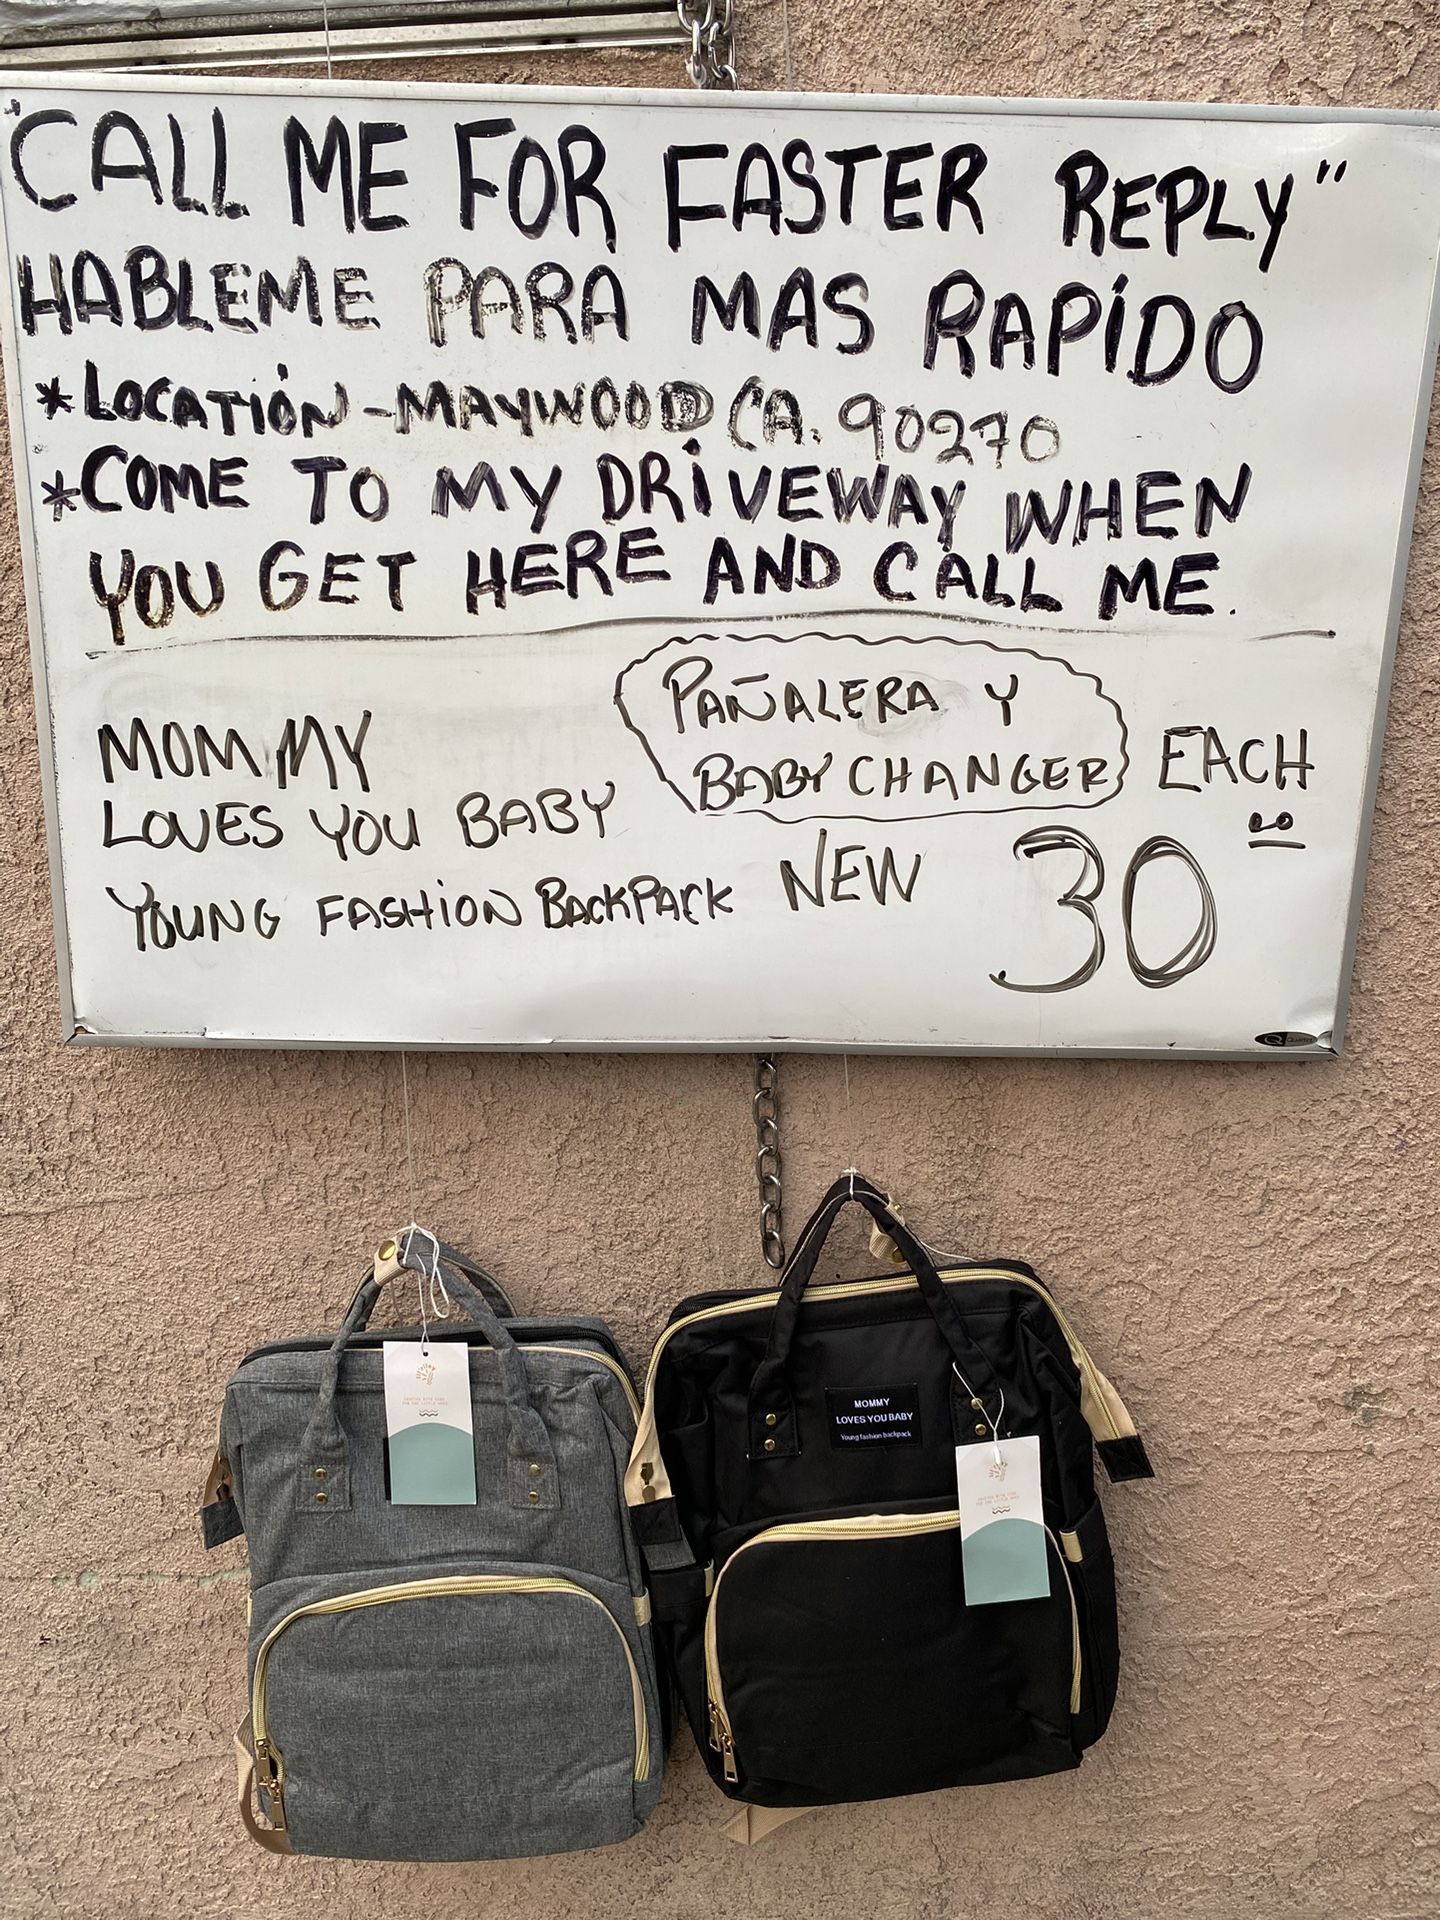 "CALL ME FOR FASTER REPLY"
HABLEME PARA MAS RAPIDO
*LOCATION - MAYWOOD CA. 90270
*COME TO MY DRIVEWAY WHEN
YOU GET HERE AND CALL ME.
PAÑALERA Y
BABY CHANGER
MOMMY
LOVES YOU BABY
YOUNG FASHION BACKPACK
NEW
EACH
30 00
Quartet
MOMMY
LOVES YOU BABY
Young fashion backpack